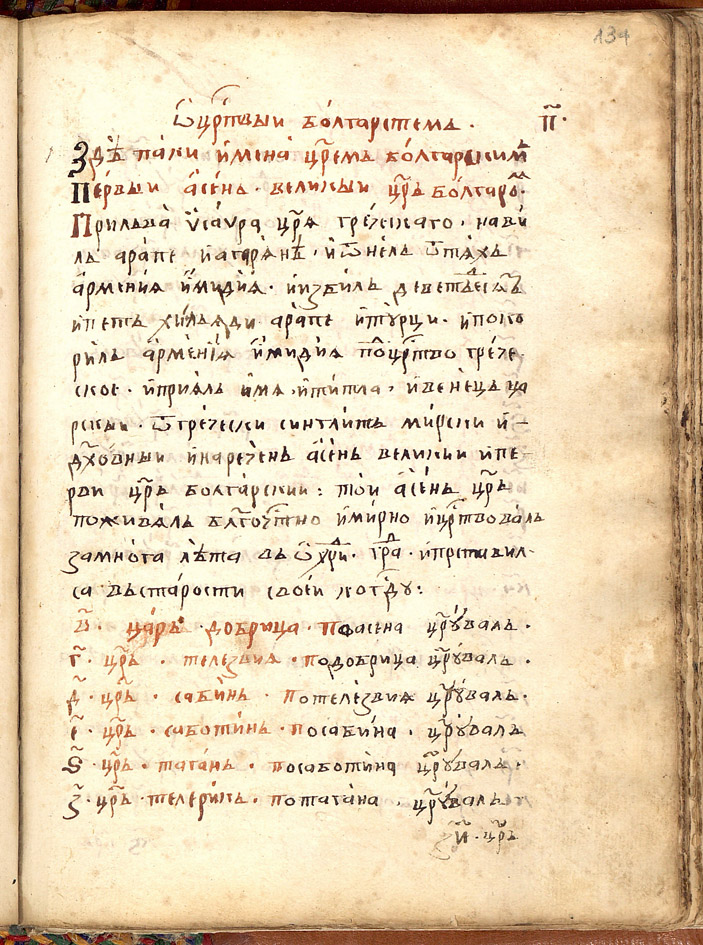 134
Ѡ црⷭ҇твыи болгарстемъ · п҃·
Здѣ паки имена црⷭ҇емъ болгарским
Первыи асень · великыи црⷭ҇ь болгаро
При льва ѵсаѵра црⷭ҇я греческаго · нави
лъ арапе и агаряне · и ѿнелъ ѿ тяхъ
армения и мидия · и избилъ деветдесят
и петь хиляди арапе и турци · и поко
рилъ армения и мидия по црⷭ҇тво грече
ское · и приялъ имя и титла · и венець ца
рскыи · ѿ гречески синглитъ мирски и
дх҃овныи и нареченъ асень великии и пе
рви црⷭ҇ь болгарскии : тои асень црⷭ҇ь
поживялъ блгочⷭ҇тно и мирно и црⷭ҇твовалъ
за многа лѣта въ ѡхри · гра · и преставил
са въ старости своеи ко гдⷭ҇у :
в҃ · царь · добрица · по асена црⷭ҇увалъ ·
г҃ · црⷭ҇ь · телезвия · по добрица црⷭ҇увалъ ·
д҃ · црⷭ҇ь · сабинъ · по телезвия црⷭ҇увалъ ·
е҃ · црⷭ҇ь · саботинъ · по сабина · црⷭ҇увалъ
ѕ҃ · црⷭ҇ь · таганъ · по саботина црⷭ҇увалъ ·
з҃ · црⷭ҇ь · телерикъ · по тагана · црⷭ҇увалъ
и҃ · црⷭ҇ь